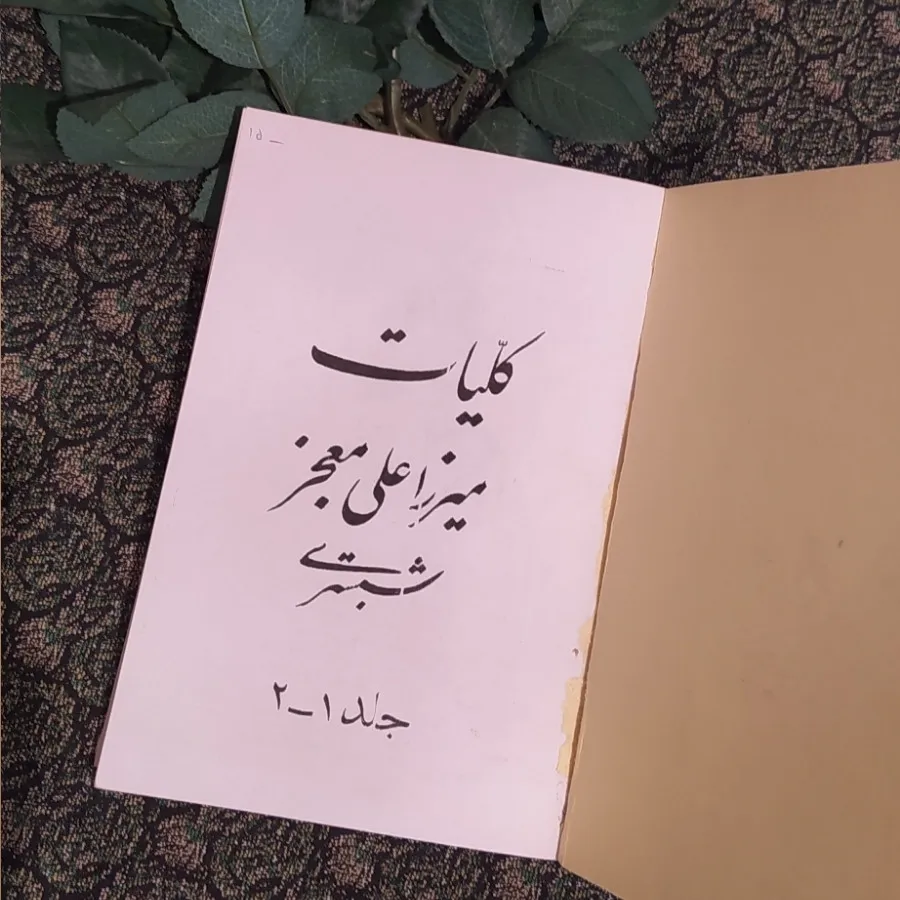 کلّیات
میرزا علی معجز
شبستری
جلد ۱-۲